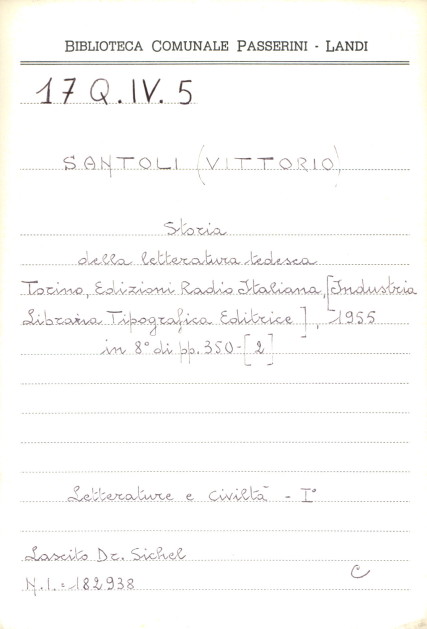 BIBLIOTECA COMUNALE PASSERINI - LANDI
17 Q.IV.5
SANTOLI (VITTORIO)
Storia
della letteratura tedesca
Torino, Edizioni Radio Italiana, [Industria
Libraria Tipografica Editrice], 1955
in 8° di pp. 350-[2]
Letterature e civiltà - I°
Lascito Dr. Sichel
N.I.=182938
C